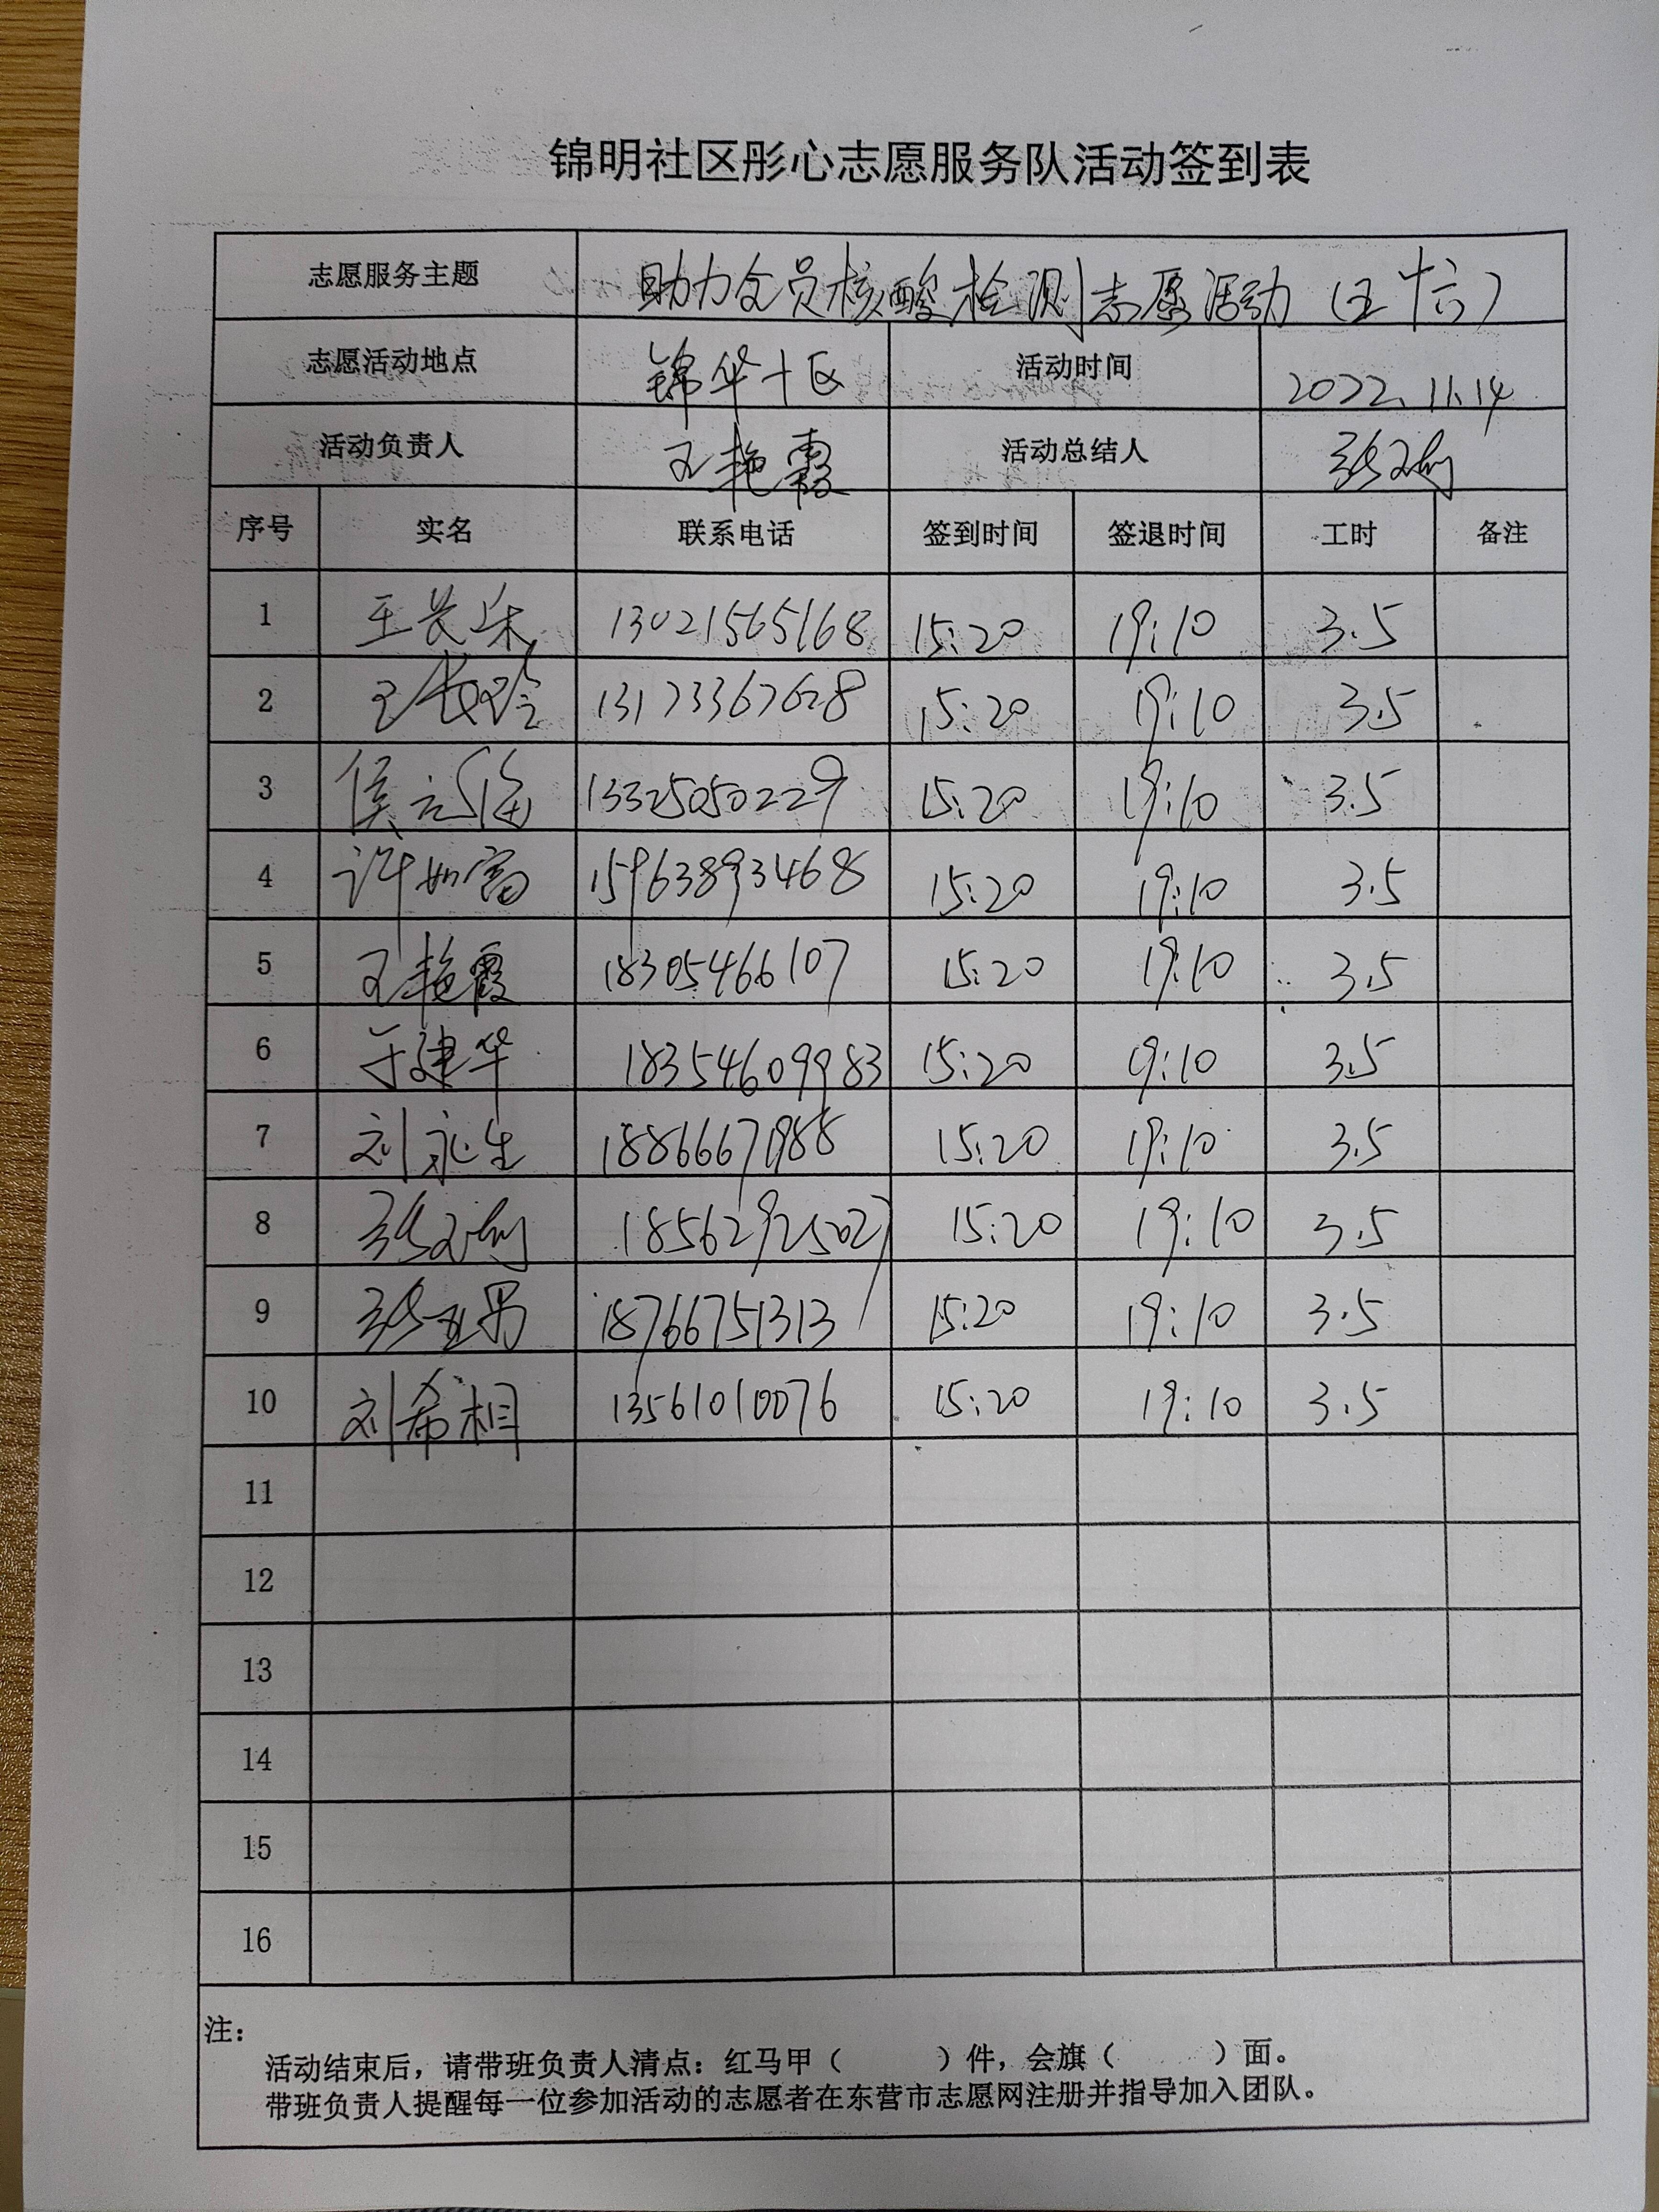 锦明社区彤心志愿服务队活动签到表
志愿服务主题 助力全员核酸检测志愿活动（五十六）
志愿活动地点 锦华十区 活动时间 2022.11.14
活动负责人 王艳霞 活动总结人 张
序号 实名 联系电话 签到时间 签退时间 工时 备注
1 王长 13021565168 15:20 19:10 3.5
2 王长玲 13173367628 15:20 19:10 3.5
3 侯元 13325050229 15:20 19:10 3.5
4 许如富 15963893468 15:20 19:10 3.5
5 王艳霞 18305466107 15:20 19:10 3.5
6 于建华 18354609983 15:20 19:10 3.5
7 刘永生 18866671988 15:20 19:10 3.5
8 张 18562925027 15:20 19:10 3.5
9 张亚男 18766751313 15:20 19:10 3.5
10 刘希相 13561010076 15:20 19:10 3.5
11
12
13
14
15
16
注：
活动结束后，请带班负责人清点：红马甲（ ）件，会旗（ ）面。
带班负责人提醒每一位参加活动的志愿者在东营市志愿网注册并指导加入团队。